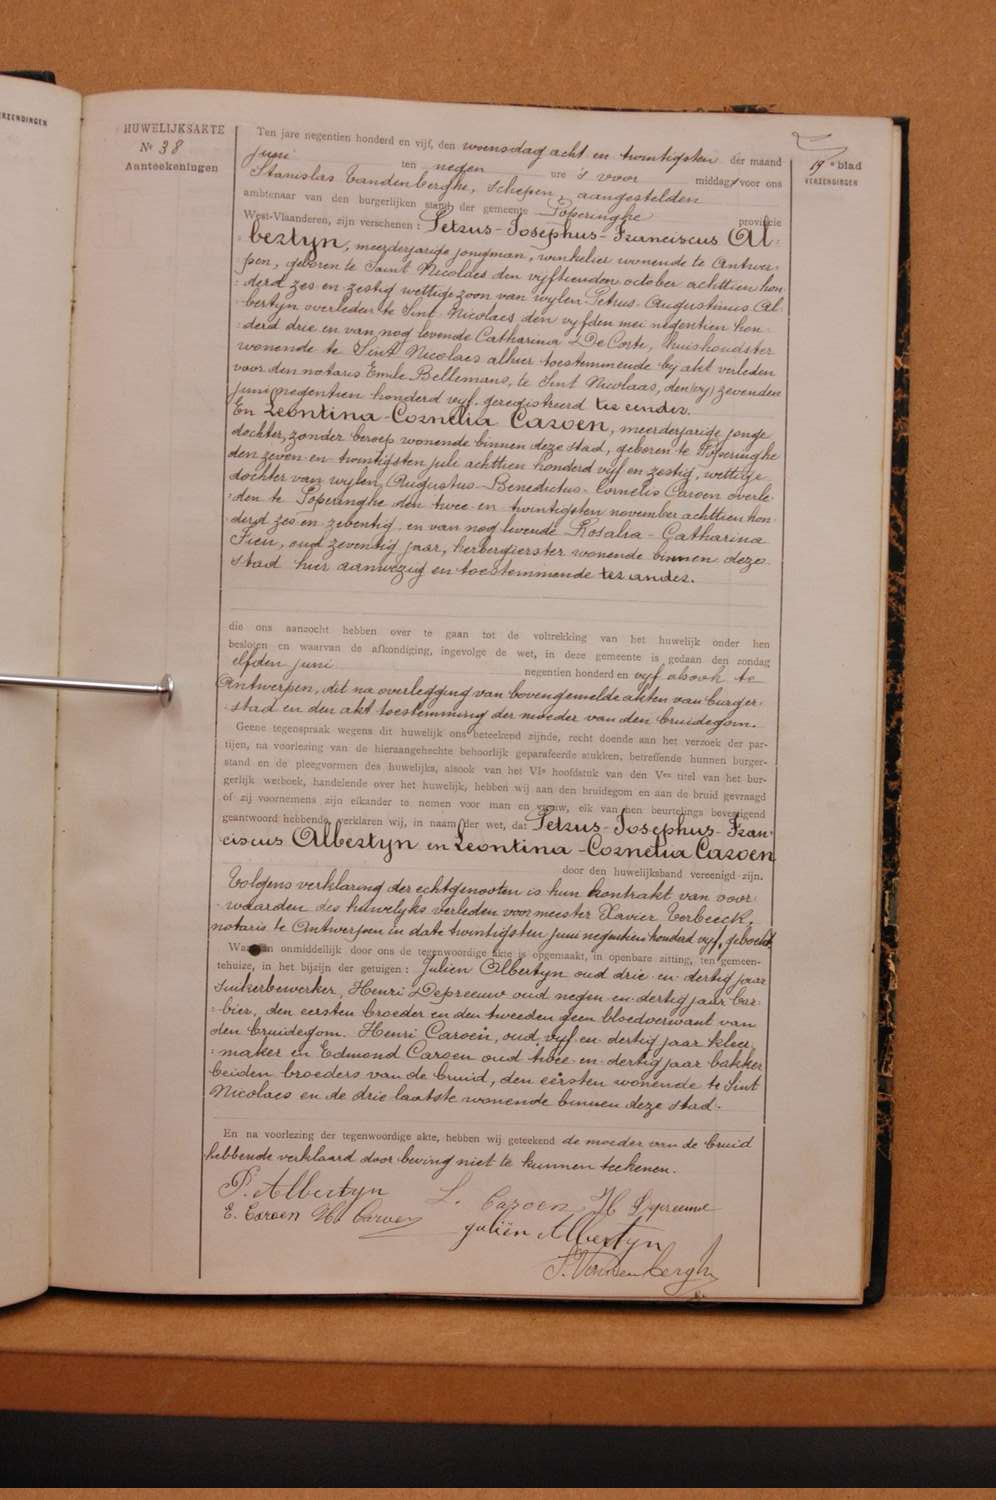 ERZENDINGEN
HUWELIJKSAKTE
Nr 38
Aanteekeningen
19e blad
VERZENDINGEN
Ten jare negentien honderd en vijf, den woensdag acht en twintigsten der maand
juni ten negen ure 's voor middags voor ons
Stanislas Vandenberghe, schepen, aangestelden
ambtenaar van den burgerlijken stand der gemeente Poperinghe provincie
West-Vlaanderen, zijn verschenen : Petrus-Josephus-Franciscus Al-
bertyn, meerderjarige jongman, winkelier wonende te Antwer-
pen, geboren te Saint Nicolaes den vijftienden october achttien hon-
derd zes en zestig wettige zoon van wylen Petrus Augustinus Al-
bertyn overleden te Sint Nicolaes den vyfden mei negentien hon-
derd drie en van nog levende Catharina De Corte, huishoudster
wonende te Sint Nicolaes alhier toestemmende bij akt verleden
voor den notaris Emile Bellemans, te Sint Nicolaas, den zevenden
juni negentien honderd vyf geregistreerd ter eender.
En Leontina-Cornelia Caroen, meerderjarige jonge
dochter, zonder beroep wonende binnen deze stad, geboren te Poperinghe
den zeven en twintigsten juli achttien honderd vyf en zestig, wettige
dochter van wylen Augustus-Benedictus-Cornelis Caroen overle-
den te Poperinghe den twee en twintigsten november achttien hon-
derd zes en zeventig en van nog levende Rosalia-Catharina
Fieu, oud zeventig jaar, herbergierster wonende binnen deze
stad hier aanwezig en toestemmende ter ander.
die ons aanzocht hebben over te gaan tot de voltrekking van het huwelijk onder hen
besloten en waarvan de afkondiging, ingevolge de wet, in deze gemeente is gedaan den zondag
elfden juni negentien honderd en vyf alsook te
Antwerpen, dit na overlegging van bovengemelde akten van burger-
stad en den akt toestemming der moeder van den bruidegom.
Geene tegenspraak wegens dit huwelijk ons beteekend zijnde, recht doende aan het verzoek der par-
tijen, na voorlezing van de hieraangehechte behoorlijk geparafeerde stukken, betreffende hunnen burger-
stand en de pleegvormen des huwelijks, alsook van het VIe hoofdstuk van den Ven titel van het bur-
gerlijk wetboek, handelende over het huwelijk, hebben wij aan den bruidegom en aan de bruid gevraagd
of zij voornemens zijn elkander te nemen voor man en vrouw, elk van hen beurtelings bevestigend
geantwoord hebbende, verklaren wij, in naam der wet, dat Petrus-Josephus-Fran-
ciscus Albertyn en Leontina-Cornelia Caroen
door den huwelijksband vereenigd zijn.
Volgens verklaring der echtgenooten is hun kontrakt van voor-
waarden des huwelyks verleden voor meester Xavier Verbeeck,
notaris te Antwerpen in date twintigsten juni negentien honderd vyf, geboekt
Waarvan onmiddellijk door ons de tegenwoordige akte is opgemaakt, in openbare zitting, ten gemeen-
tehuize, in het bijzijn der getuigen : Julien Albertyn oud drie en dertig jaar
suikerbewerker, Henri Depreeuw oud negen en dertig jaar bar-
bier, den eersten broeder en den tweeden geen bloedverwant van
den bruidegom. Henri Caroen, oud vyf en dertig jaar kleer-
maker en Edmond Caroen oud twee en dertig jaar bakker
beiden broeders van de bruid, den eersten wonende te Sint
Nicolaes en de drie laatste wonende binnen deze stad.
En na voorlezing der tegenwoordige akte, hebben wij geteekend de moeder van de bruid
hebbende verklaard door beving niet te kunnen teekenen.
P. Albertyn L. Caroen H Depreeuw
E. Caroen H. Caroen Juliën Albertyn
S. Vandenberghe